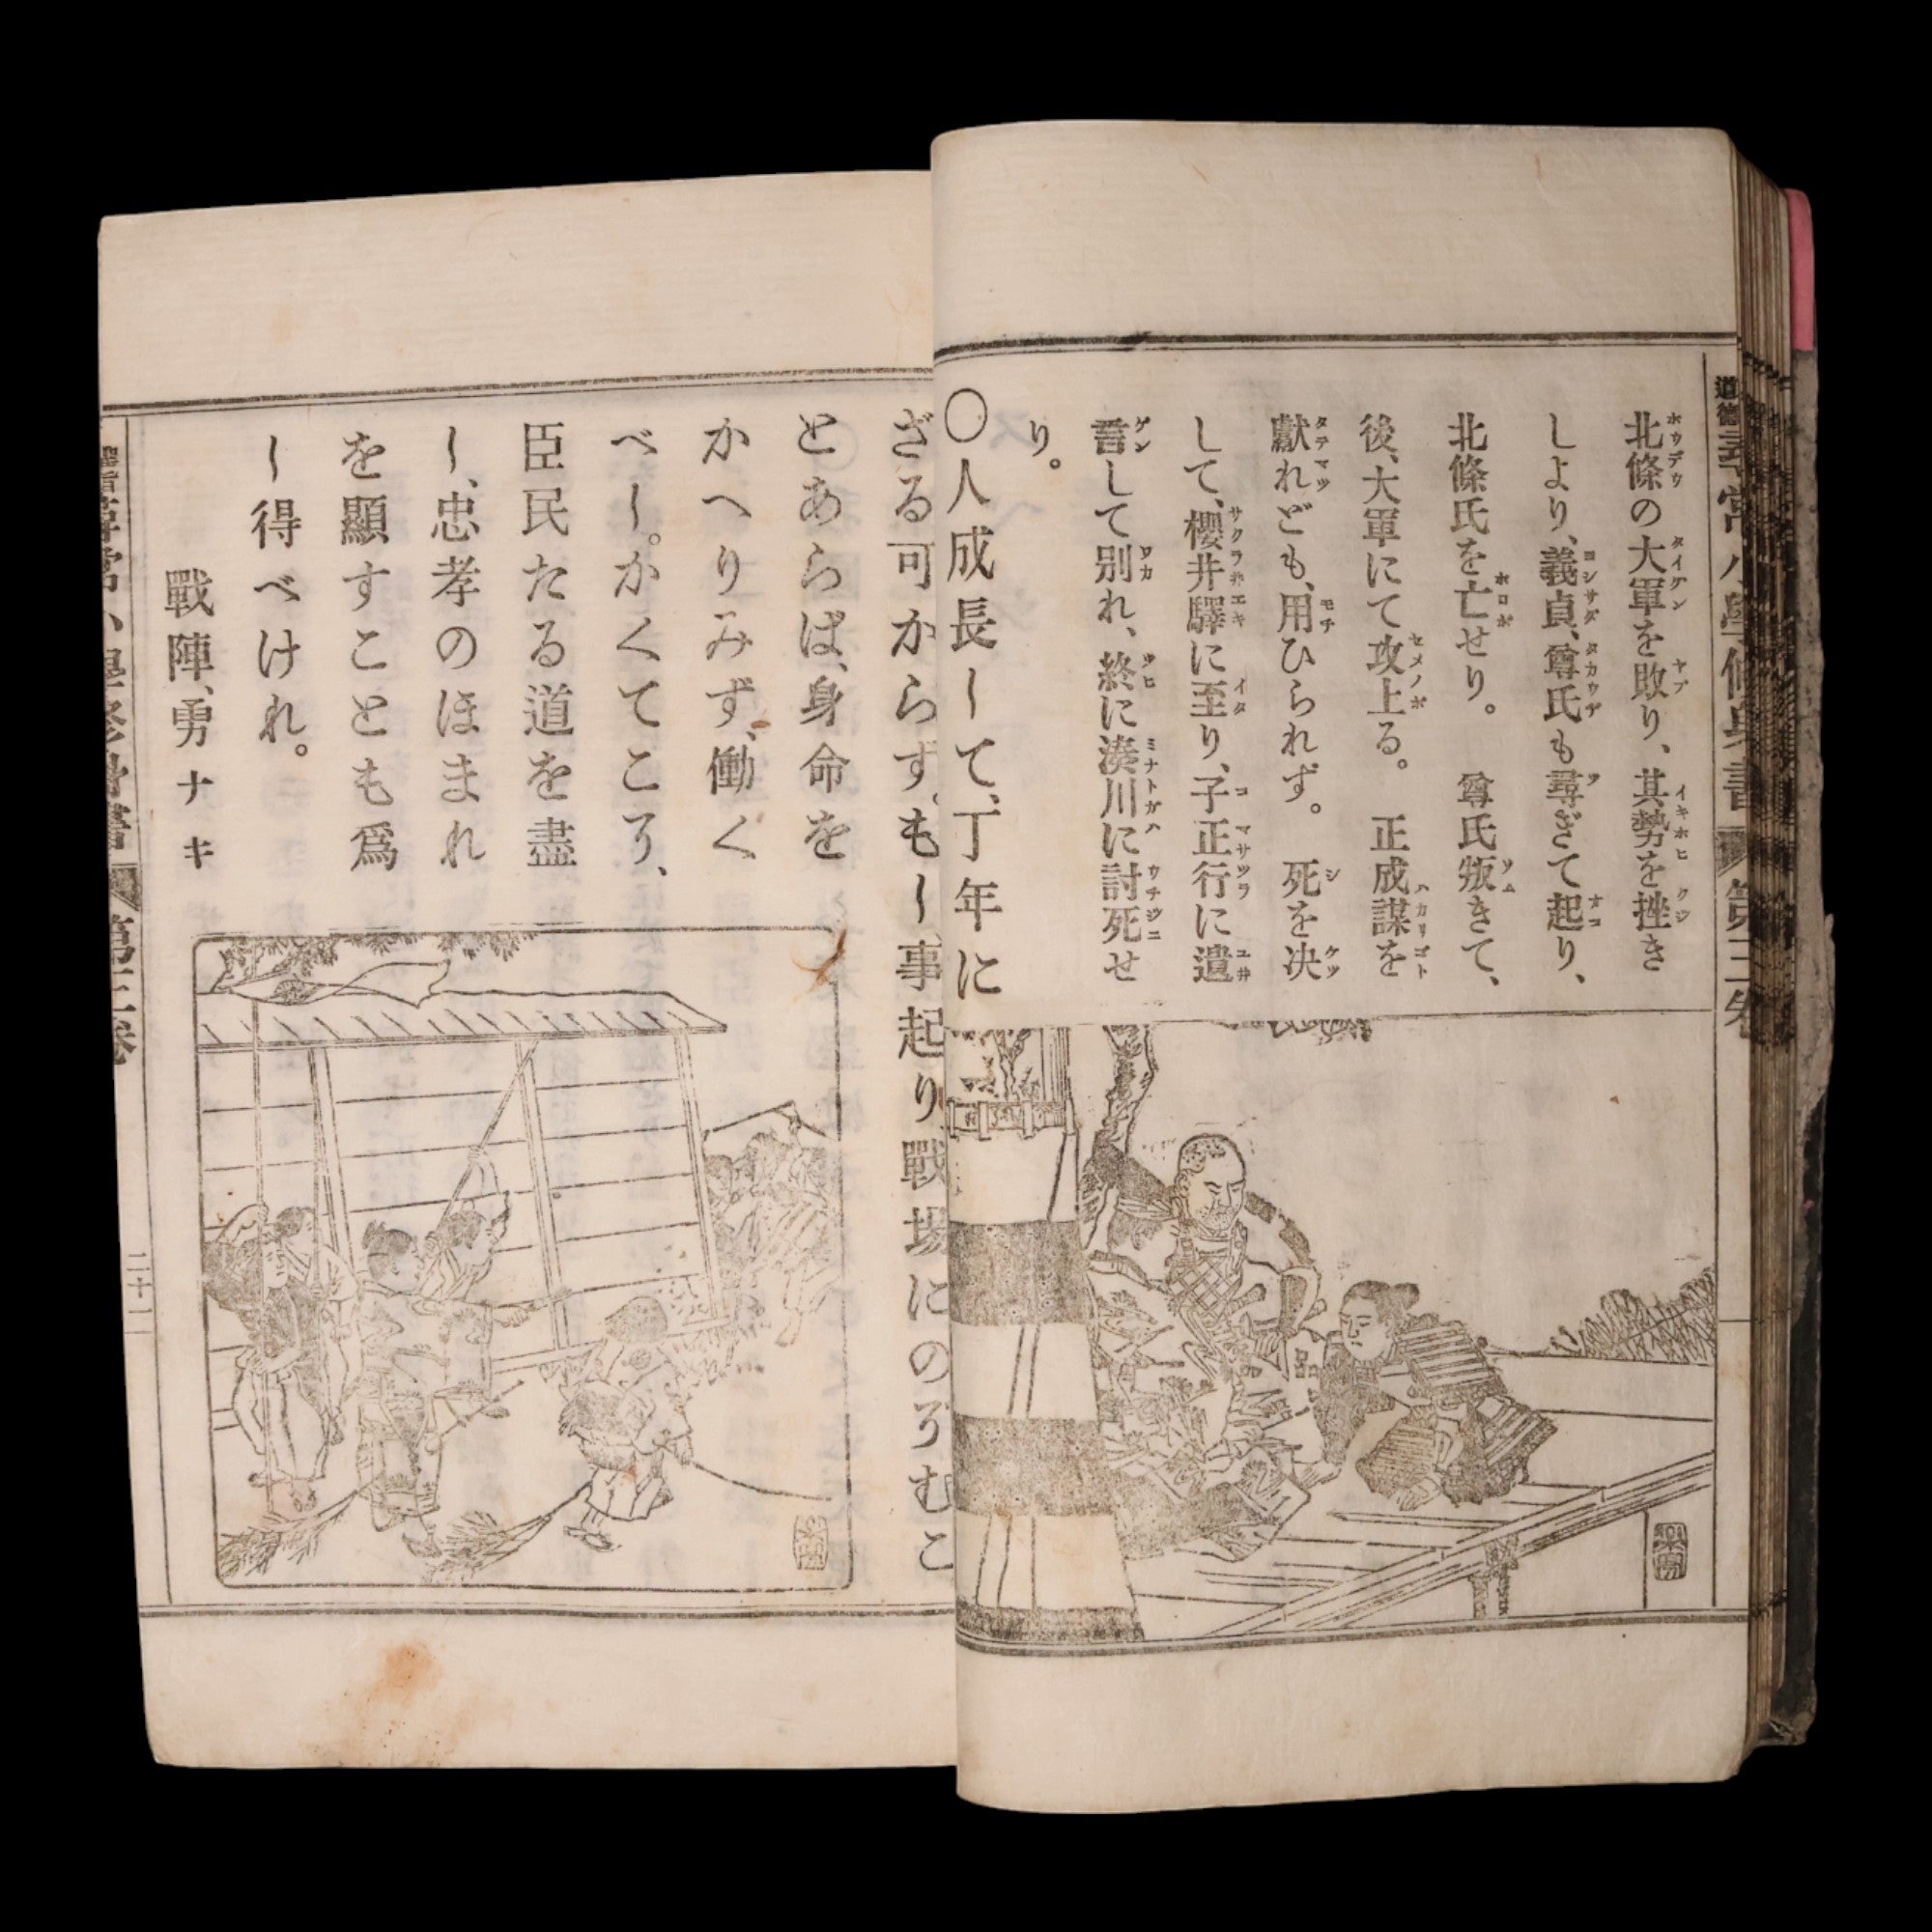 北條の大軍を敗り、其勢を挫き
しより、義貞、尊氏も尋ぎて起り、
北條氏を亡せり。　尊氏叛きて、
後、大軍にて攻上る。　正成謀を
獻れども、用ひられず。　死を决
して、櫻井驛に至り、子正行に遺
言して別れ、終に湊川に討死せ
り。
〇人成長して、丁年に
ざる可からず。もし事起り戰場にのぞむこ
とあらば、身命を
かへりみず、働く
べし。かくてこそ、
臣民たる道を盡
し、忠孝のほまれ
を顯すことも爲
し得べけれ。
戰陣、勇ナキ